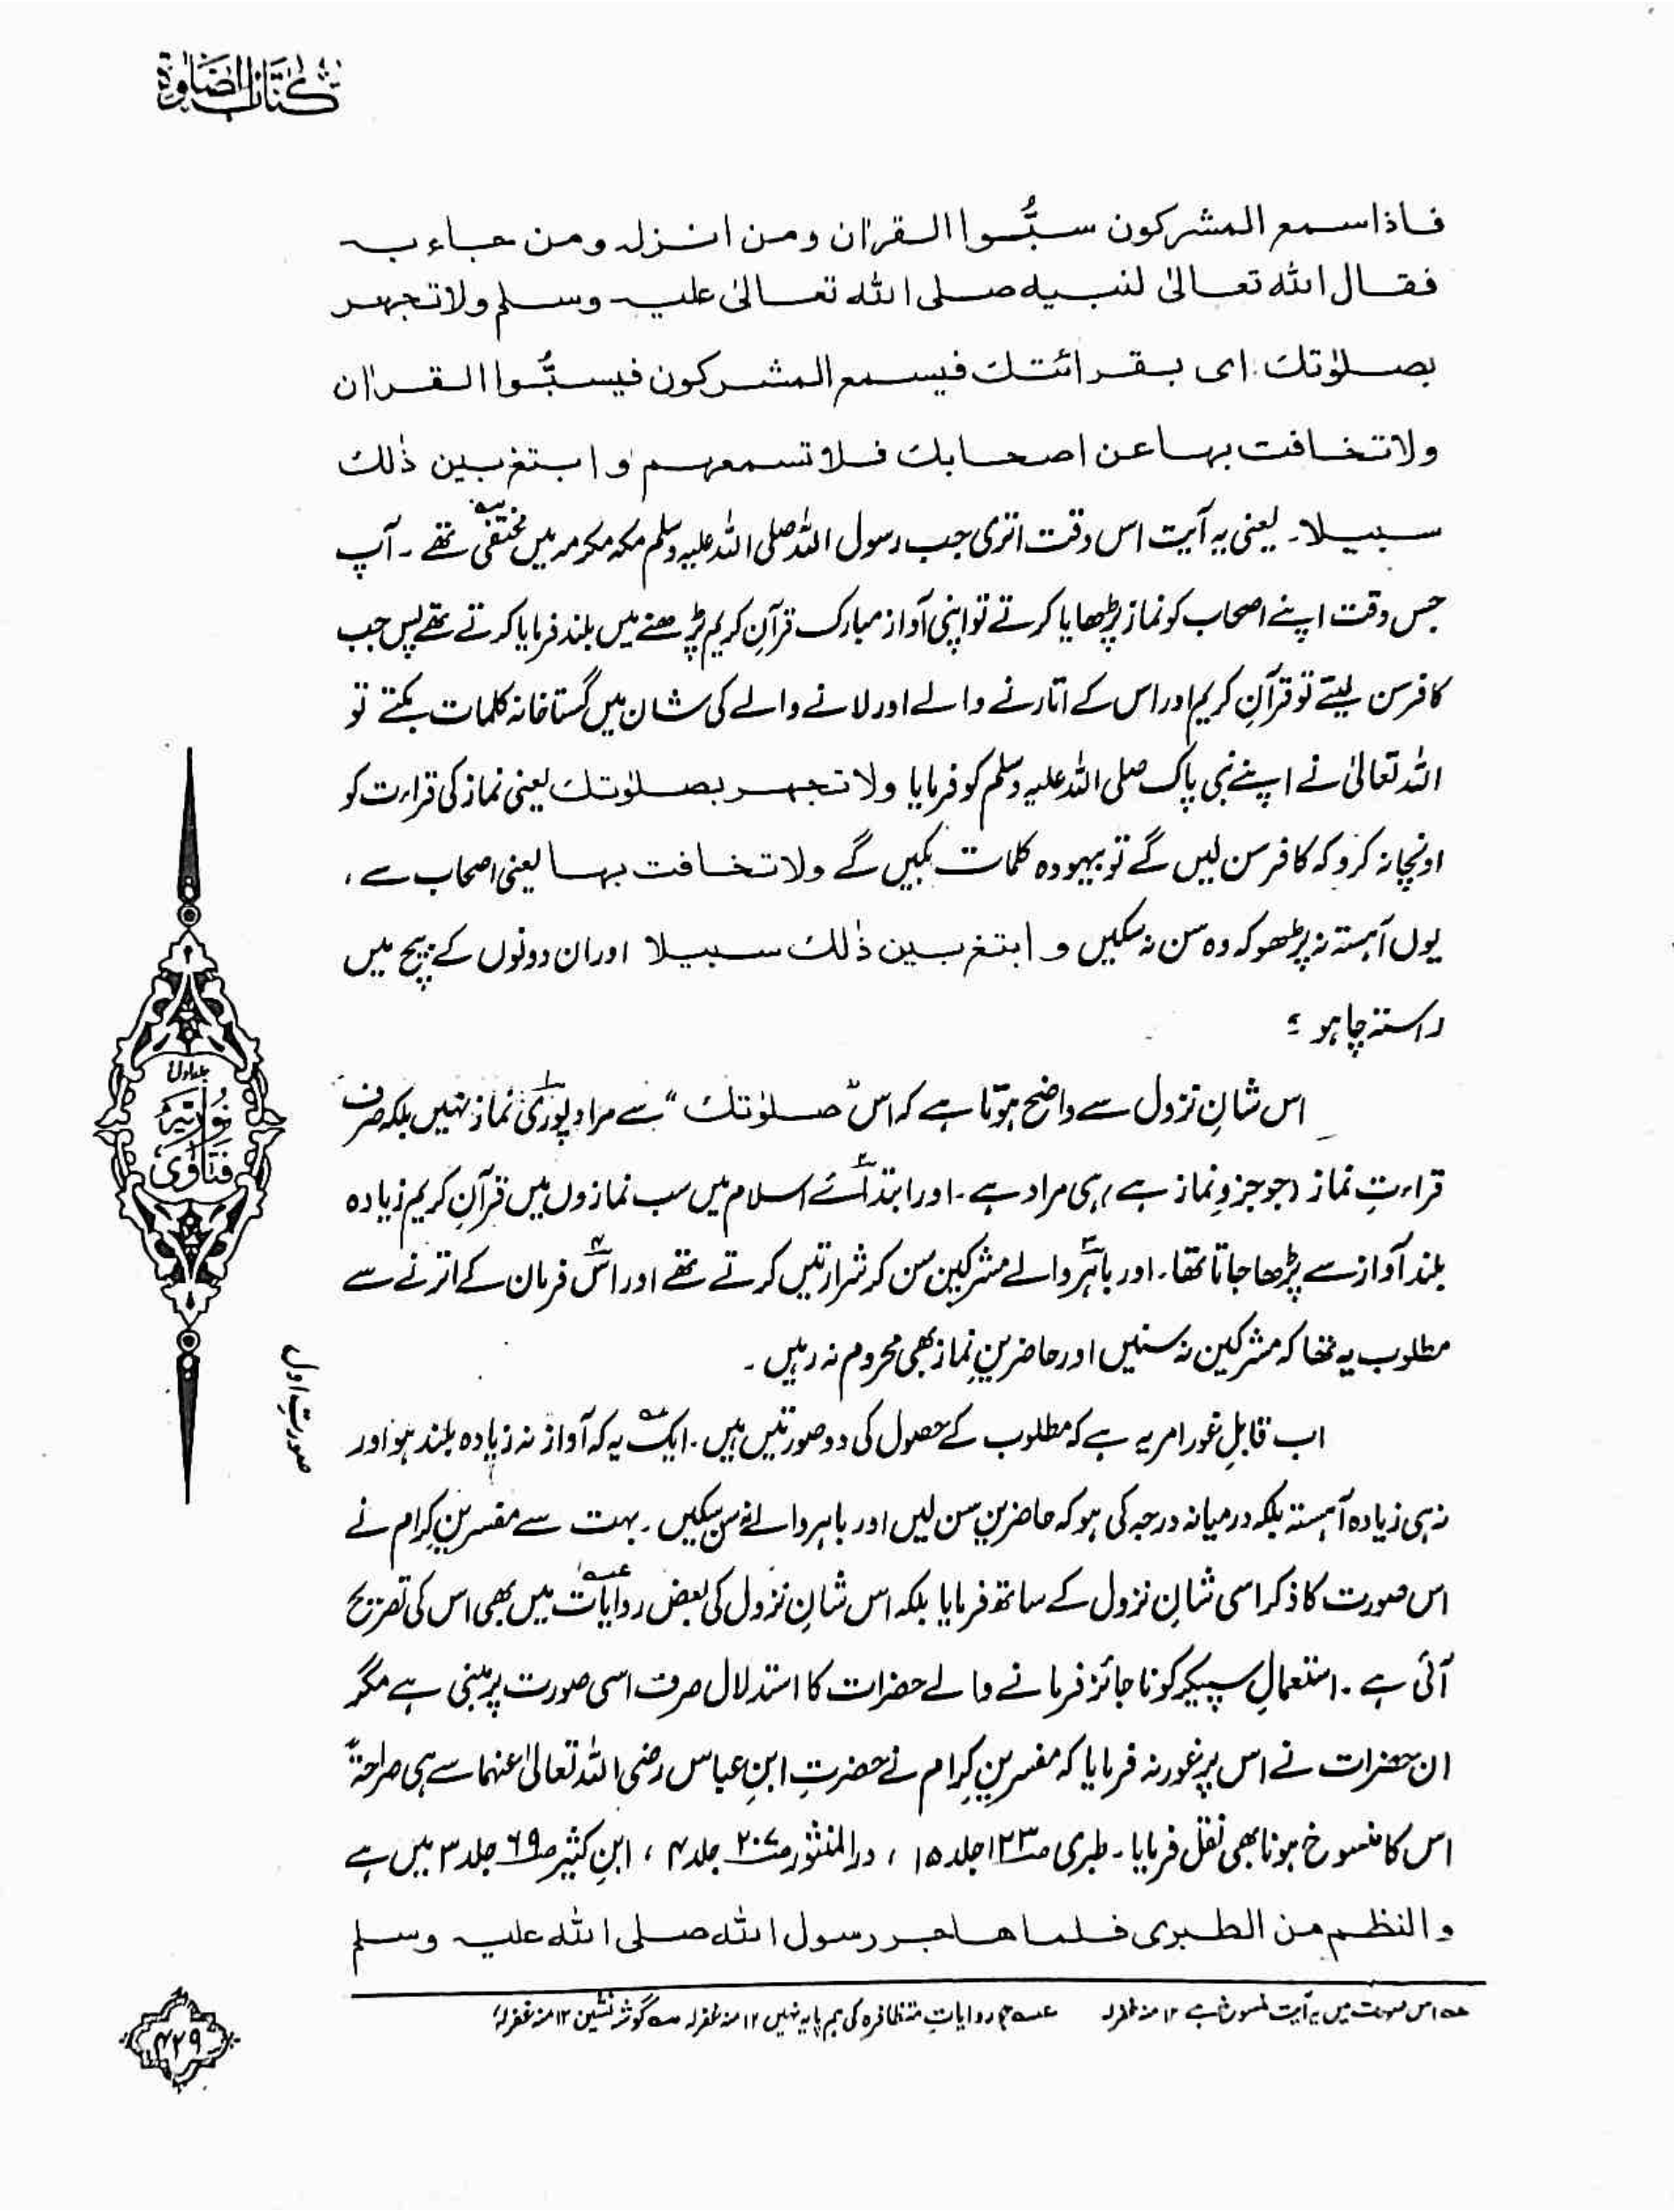 کتاب الصلوٰۃ
فاذا سمع المشرکون سبُّوا القراٰن ومن انزلہ ومن جاء بہ
فقال اللہ تعالیٰ لنبیہ صلی اللہ تعالیٰ علیہ وسلم ولا تجھر
بصلوٰتک ای بقرائتک فیسمع المشرکون فیسبُّوا القراٰن
ولا تخافت بھا عن اصحابک فلا تسمعھم وابتغ بین ذٰلک
سبیلا۔ یعنی یہ آیت اس وقت اتری جب رسول اللہ صلی اللہ علیہ وسلم مکہ مکرمہ میں مختفی تھے۔ آپ
جس وقت اپنے اصحاب کو نماز پڑھایا کرتے تو اپنی آواز مبارک قرآنِ کریم پڑھنے میں بلند فرمایا کرتے تھے پس جب
کافر سن لیتے تو قرآنِ کریم اور اس کے اتارنے والے اور لانے والے کی شان میں گستاخانہ کلمات بکتے تو
اللہ تعالیٰ نے اپنے نبی پاک صلی اللہ علیہ وسلم کو فرمایا ولا تجھر بصلوٰتک یعنی نماز کی قراءت کو
اونچا نہ کرو کہ کافر سن لیں گے تو بیہودہ کلمات بکیں گے ولا تخافت بھا یعنی اصحاب سے،
یوں آہستہ نہ پڑھو کہ وہ سن نہ سکیں وابتغ بین ذٰلک سبیلا اور ان دونوں کے بیچ میں
راستہ چاہو ؛
اس شانِ نزول سے واضح ہوتا ہے کہ اس "صلوٰتک" سے مراد پوری نماز نہیں بلکہ صرف
قراءتِ نماز (جو جزوِ نماز ہے) ہی مراد ہے۔ اور ابتدائے اسلام میں سب نمازوں میں قرآنِ کریم زیادہ
بلند آواز سے پڑھا جاتا تھا۔ اور باہر والے مشرکین سن کر شرارتیں کرتے تھے اور اس فرمان کے اترنے سے
مطلوب یہ تھا کہ مشرکین نہ سنیں اور حاضرینِ نماز بھی محروم نہ رہیں۔
اب قابلِ غور امر یہ ہے کہ مطلوب کے حصول کی دو صورتیں ہیں۔ ایک یہ کہ آواز نہ زیادہ بلند ہو اور
نہ ہی زیادہ آہستہ بلکہ درمیانہ درجہ کی ہو کہ حاضرین سن لیں اور باہر والے نہ سن سکیں۔ بہت سے مفسرینِ کرام نے
اس صورت کا ذکر اسی شانِ نزول کے ساتھ فرمایا بلکہ اس شانِ نزول کی بعض روایات میں بھی اس کی تصریح
آئی ہے۔ استعمالِ سپیکر کو ناجائز فرمانے والے حضرات کا استدلال صرف اسی صورت پر مبنی ہے مگر
ان حضرات نے اس پر غور نہ فرمایا کہ مفسرینِ کرام نے حضرتِ ابنِ عباس رضی اللہ تعالیٰ عنہما سے ہی صراحۃً
اس کا منسوخ ہونا بھی نقل فرمایا۔ طبری ص ۱۲۳ جلد ۱۵ ، در المنثور ص ۲۰۷ جلد ۴ ، ابنِ کثیر ص ۶۹ جلد ۳ میں ہے
والنظم من الطبری فلما ھاجر رسول اللہ صلی اللہ علیہ وسلم
عہ اس صورت میں یہ آیت منسوخ ہے ۱۲ منہ غفرلہ عہ روایاتِ متظافرہ کی ہم پایہ نہیں ۱۲ منہ غفرلہ سہ گوشہ نشین ۱۲ منہ غفرلہٗ
صورتِ اول
جلد اول
فتاویٰ نوریہ
۴۲۹